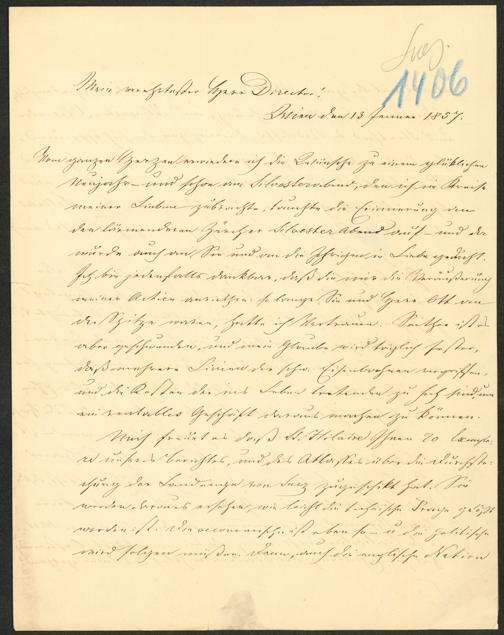 Suez.
1406
Mein verehrtester Herr Director!
Wien den 13 Jenner 1857.
Vom ganzen Herzen erwiedere ich die Wünsche zu einem glücklichen
Neujahr und schon am Sylvesterabend, den ich im Kreise
meiner Lieben zubrachte, tauchte die Erinnerung an
den lärmenderen Zürcher Sylvester Abend auf und da
wurde auch an Sie und an die Ihrigen in Liebe gedacht.
Ich bin jedenfalls dankbar, daß Sie mir die Veräußerung
meiner Actien anriethen: so lange Sie und Herr Ott an
der Spitze waren, hatte ich Vertrauen. Seither ist es
aber geschwunden, und mein Glaube wird täglich fester,
daß mehrere Linien der schw. Eisenbahnen vergriffen,
und die Kosten der ins Leben tretenden zu hoch sind, um
ein rentables Geschäft daraus machen zu können.
Mich freut es daß St. Hilaire Ihnen 20 Exempla-
re unseres Berichtes, und des Atlasses über die Durchste-
chung der Landenge von Suez zugeschikt hat. Sie
werden daraus ersehen, wie leicht die technische Frage gelößt
worden ist. Die commerschielle eben so u die politische
wird folgen müßen. Denn, auch die englische Nation